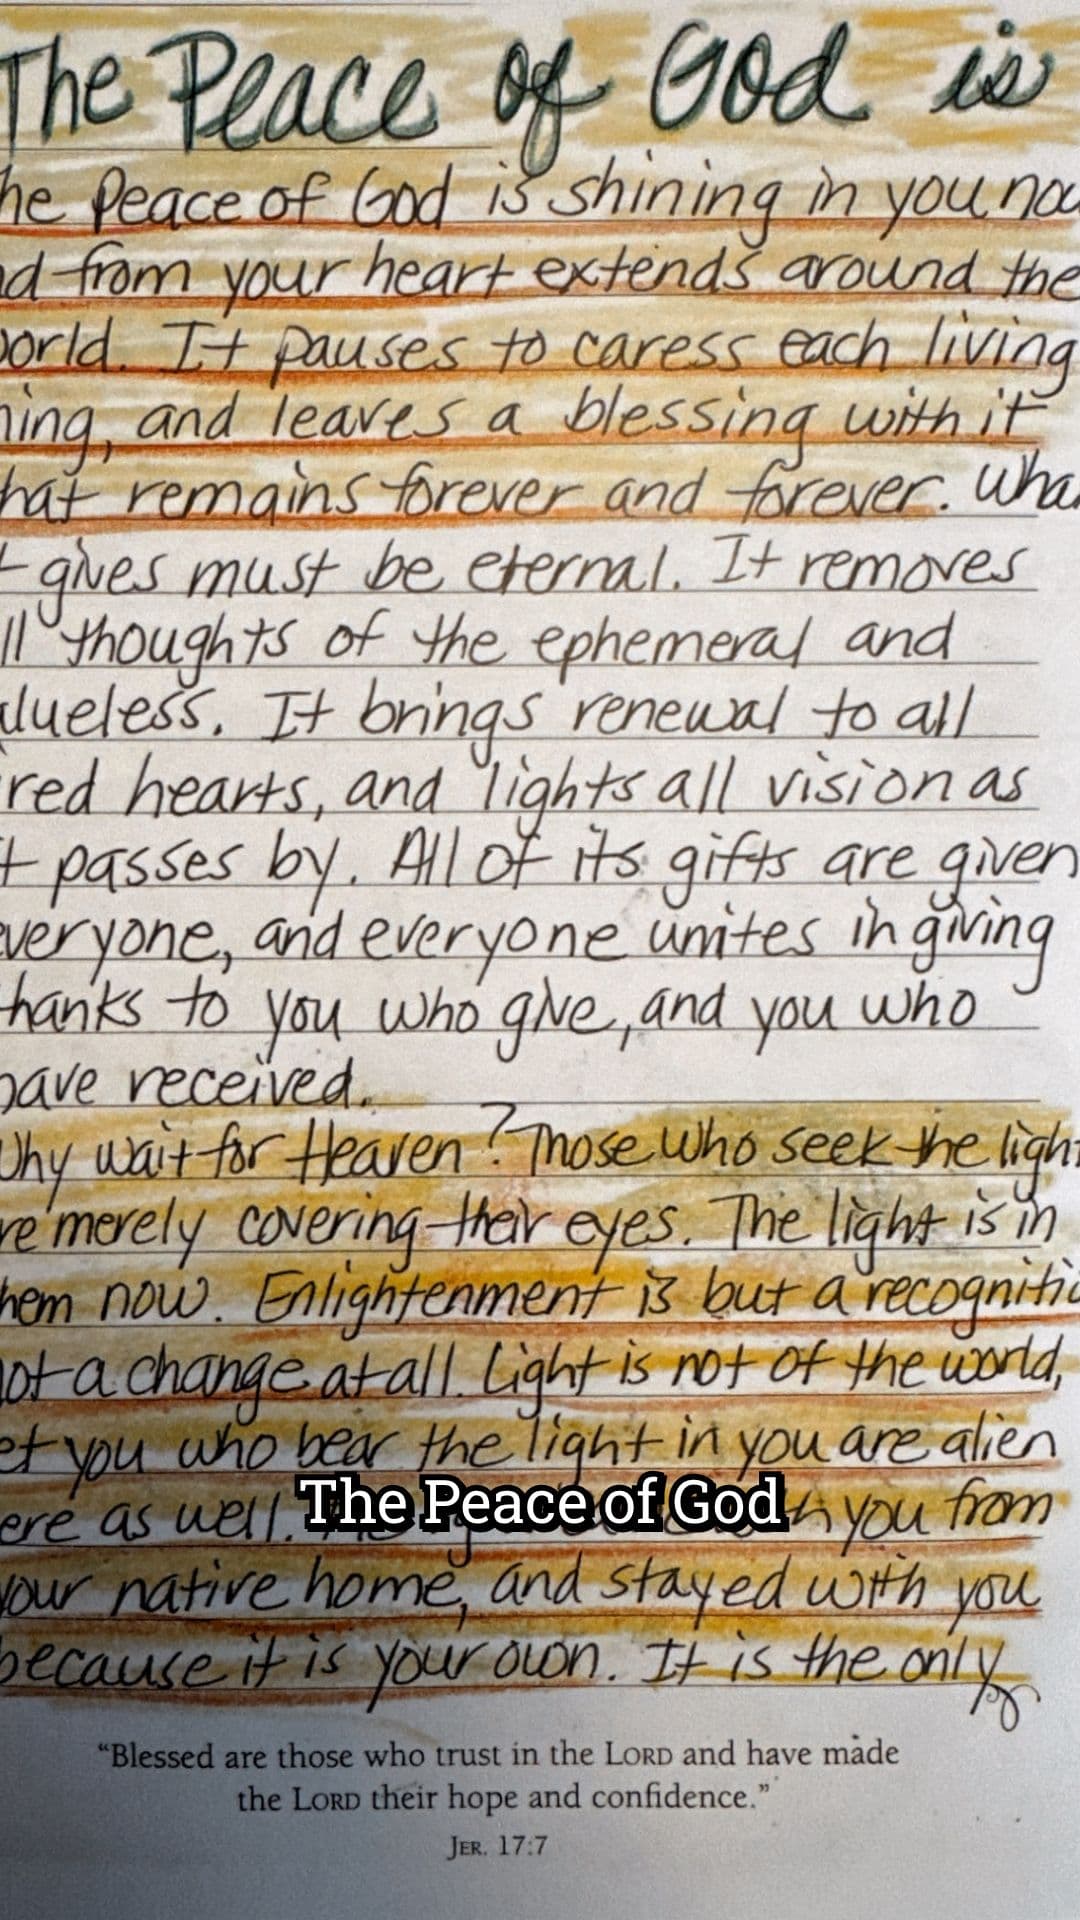 The Peace of God is
he Peace of God is shining in you no
d from your heart extends around the
orld. It pauses to caress each living
ing, and leaves a blessing with it
hat remains forever and forever. Wha
t gives must be eternal. It removes
ll thoughts of the ephemeral and
lueless. It brings renewal to all
red hearts, and lights all vision as
t passes by. All of its gifts are given
veryone, and everyone unites in giving
hanks to you who give, and you who
have received.
Why wait for Heaven? Those who seek the light
re merely covering their eyes. The light is in
hem now. Enlightenment is but a recogniti
not a change at all. Light is not of the world,
et you who bear the light in you are alien
ere as well. you from
The Peace of God
your native home, and stayed with you
because it is your own. It is the only
“Blessed are those who trust in the LORD and have made
the LORD their hope and confidence.”
JER. 17:7